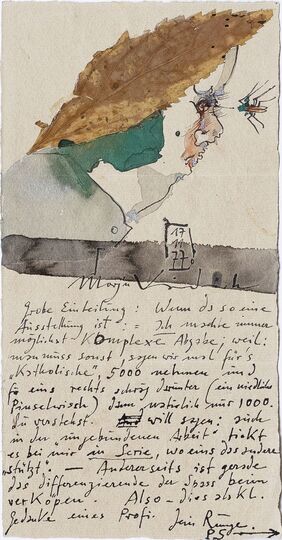 17
11
77
Grobe Einteilung: Wenn da so eine
Ausstellung ist := Ich möchte immer
möglichst Komplexe Abgabe; weil:
man muss sonst, sagen wir mal für's
"Katholische", 5000 nehmen und
für eins rechts schräg darunter (ein niedlicher
Pinselwisch) dann natürlich nur 1000.
Du verstehst. will sagen: auch
in der ungebundenen Arbeit tickt
es bei mir in Serie, wo eins das andere
stützt. — Andererseits ist gerade
das differenzierende der Spass beim
verköpen. Also - dies als kl.
Gedanke eines Profi. Dein Runge.
P.S.